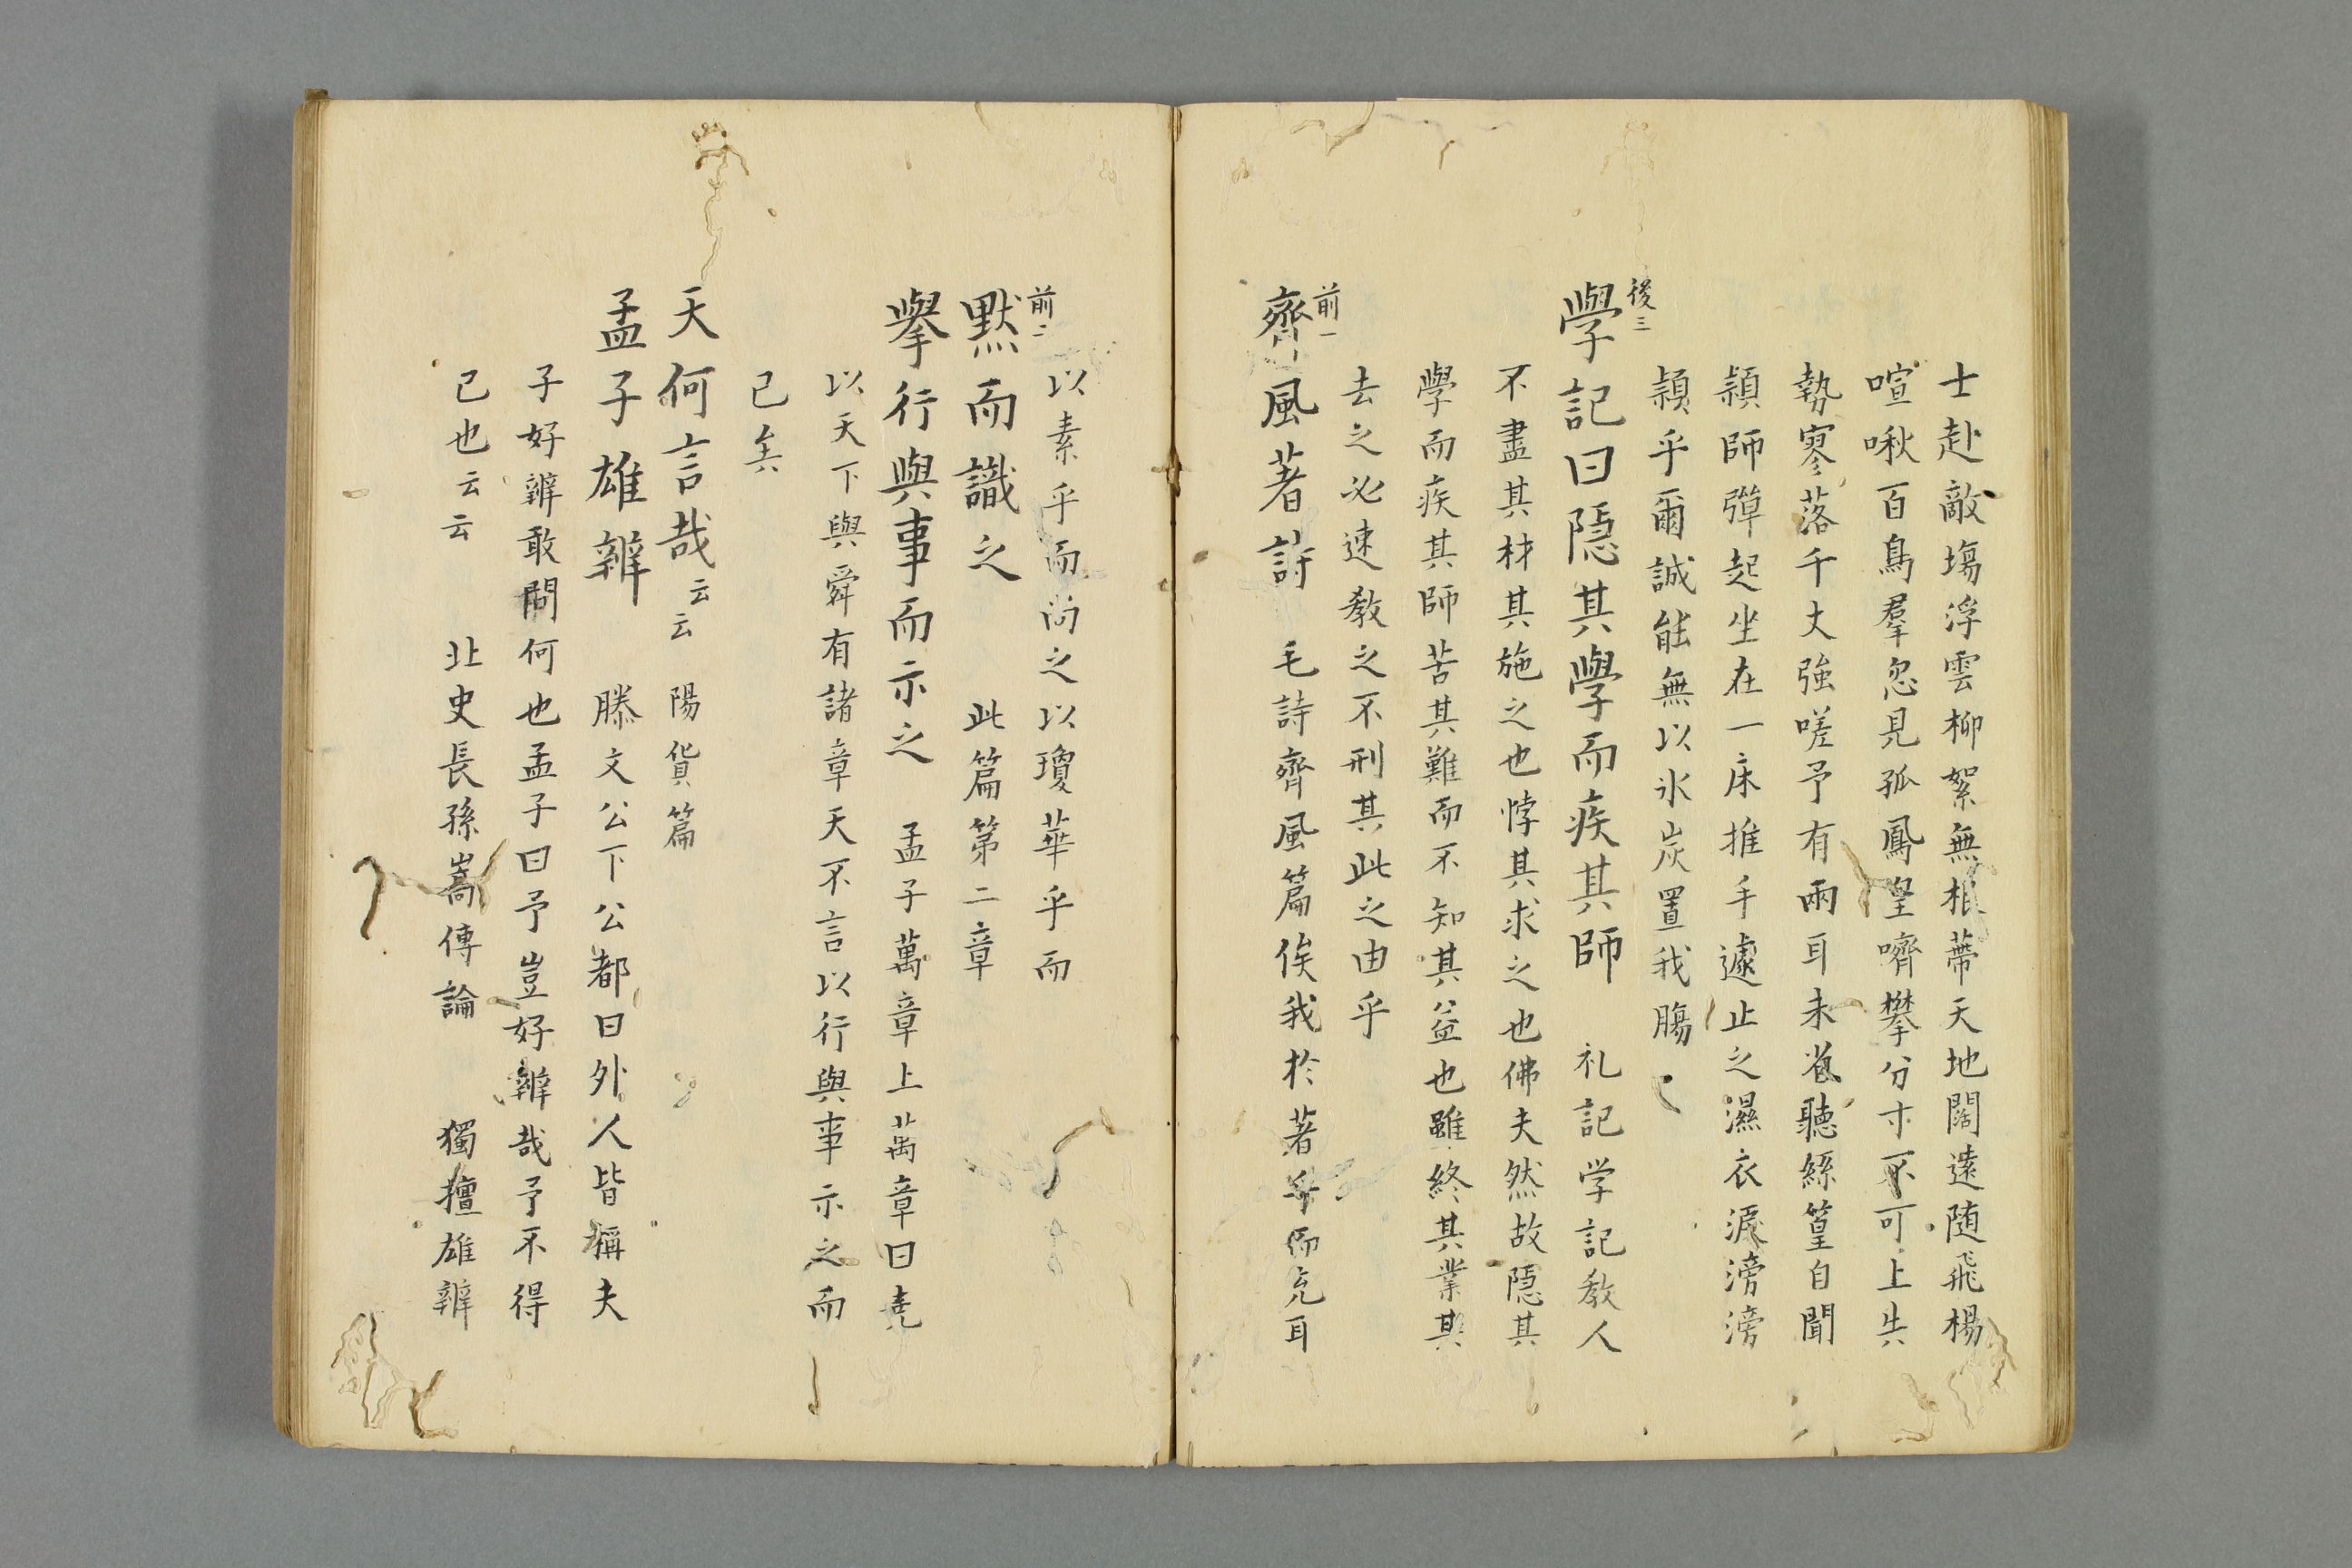 士赴敵塲浮雲柳絮無根蔕天地闊遠随飛楊
喧啾百鳥羣忽見孤鳳皇嚌攀分寸不可上失
執寥落千丈強嗟予有兩耳未省聽絲篁自聞
頴師彈起坐在一床推手遽止之濕衣淚滂滂
頴乎爾誠能無以氷炭置我腸
後三
學記曰隠其學而疾其師 礼記学記教人
不盡其材其施之也悖其求之也佛夫然故隠其
學而疾其師苦其難而不知其益也雖終其業其
去之必速教之不刑其此之由乎
前一
齊風著詩 毛詩齊風篇俟我於著乎而充耳
以素乎而尚之以瓊華乎而
前二
默而識之 此篇第二章
擧行與事而示之 孟子萬章上萬章曰堯
以天下與舜有諸章天不言以行與事示之而
已矣
天何言哉云云 陽貨篇
孟子雄辨 滕文公下公都曰外人皆稱夫
子好辨敢問何也孟子曰予豈好辨哉予不得
已也云云 北史長孫嵩傳論 獨擅雄辨